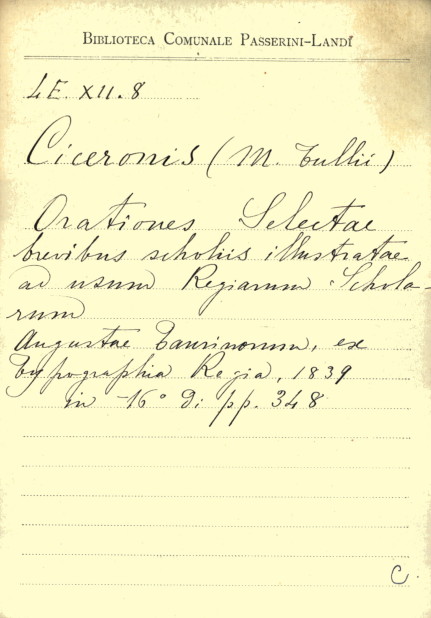 BIBLIOTECA COMUNALE PASSERINI-LANDI
LE. XII. 8
Ciceronis (M. Tullii)
Orationes Selectae
brevibus scholiis illustratae
ad usum Regiarum Schola-
rum
Augustae Taurinorum, ex
typographia Regia, 1839
in -16° di pp. 348
C.